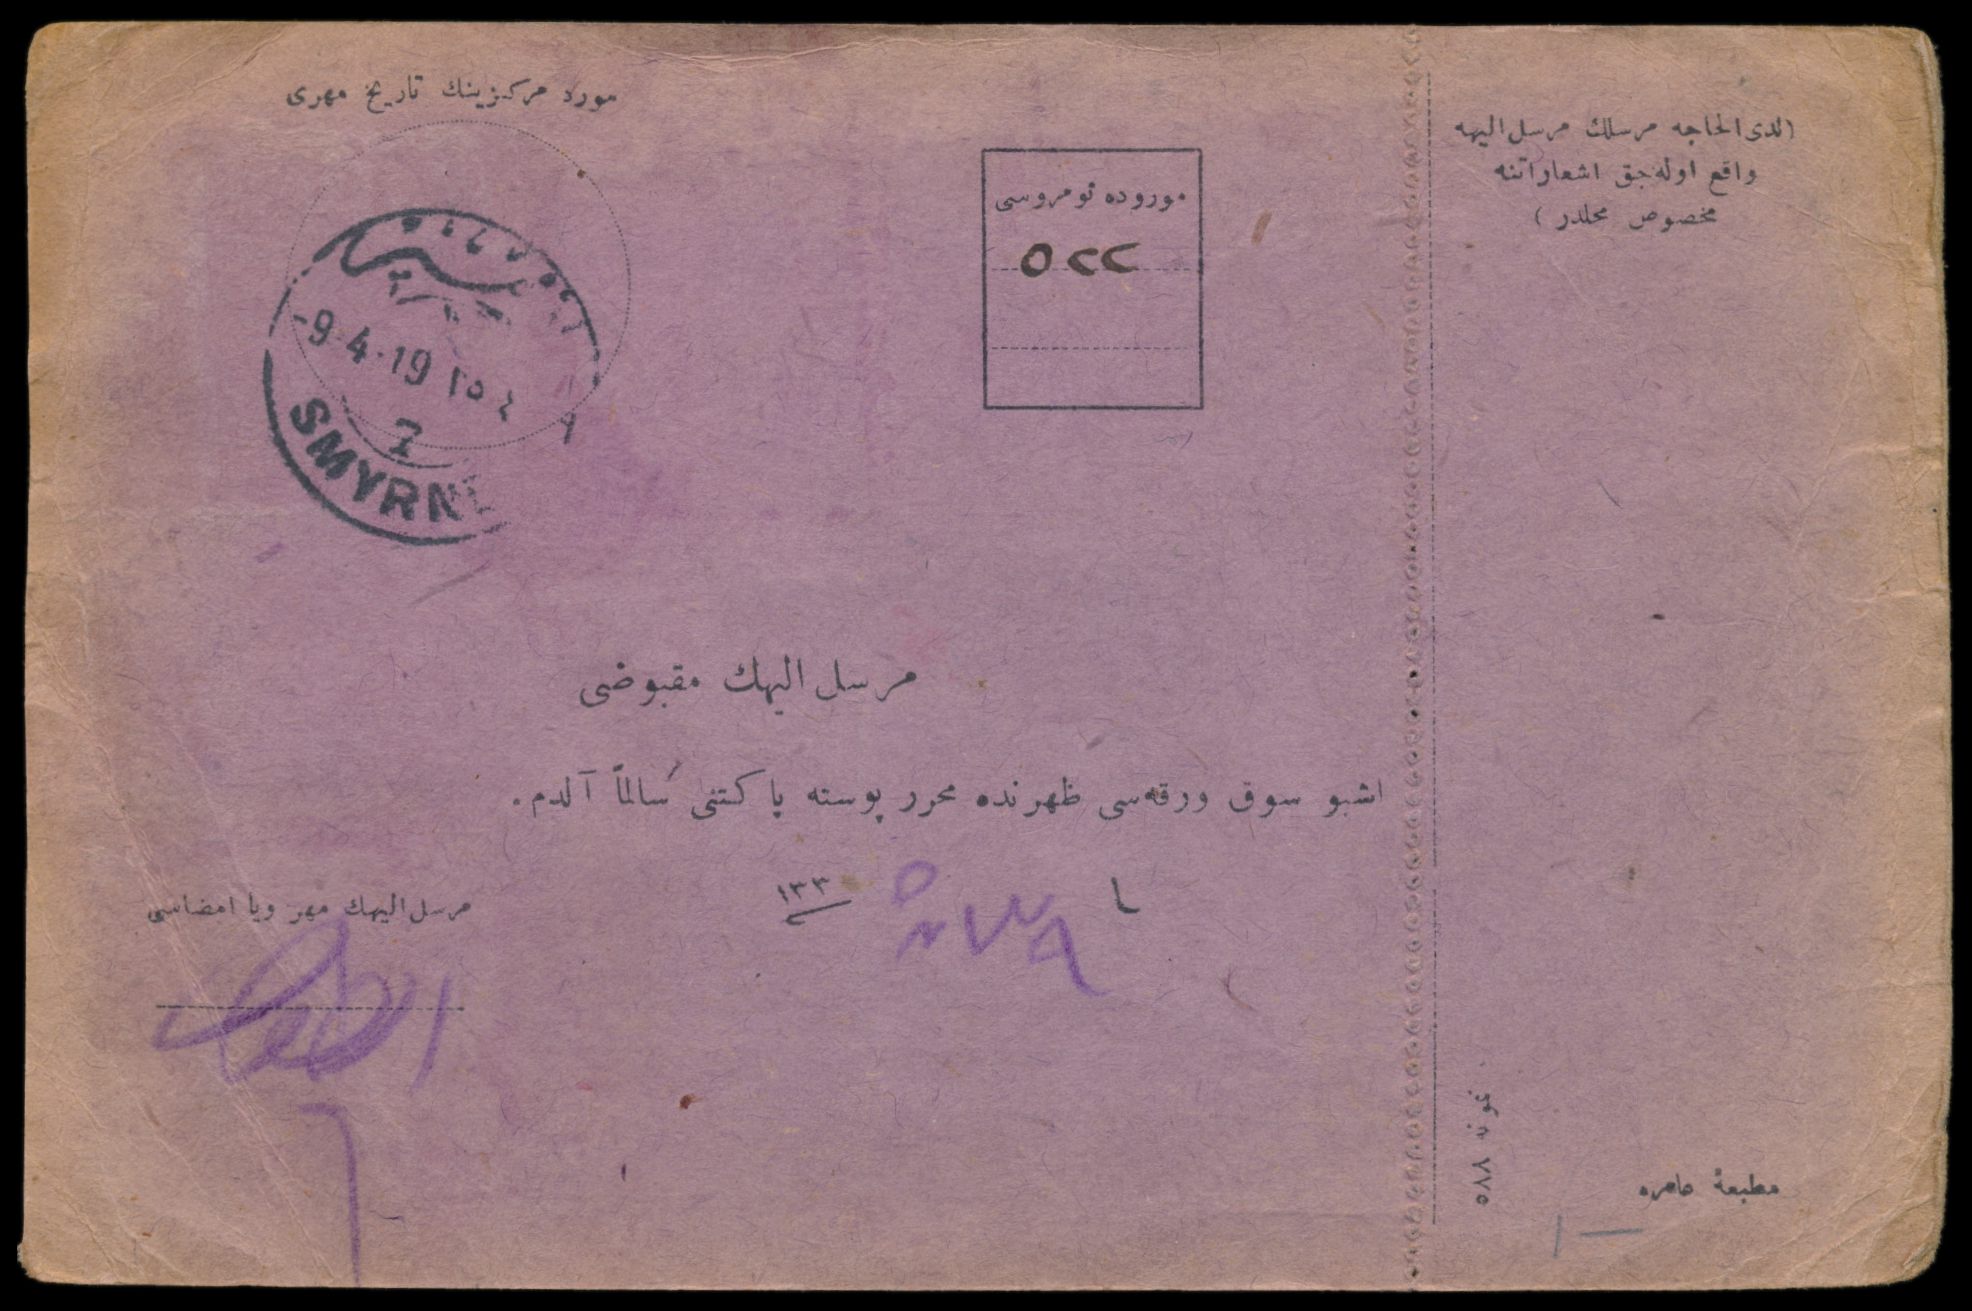 مورد مركزینك تاریخ مهری
-9-4-19
2
SMYRNE
موروده نومروسی
٥٢٢
(لدی الحاجه مرسلك مرسل الیهه
واقع اوله‌جق اشعاراتنه
مخصوص محلدر)
مرسل الیهك مقبوضی
اشبو سوق ورقه‌سی ظهرنده محرر پوسته پاكتنی سالماً آلدم.
١٣٣
مرسل الیهك مهر ویا امضاسی
نمونه ٥٧٧
مطبعهٔ عامره